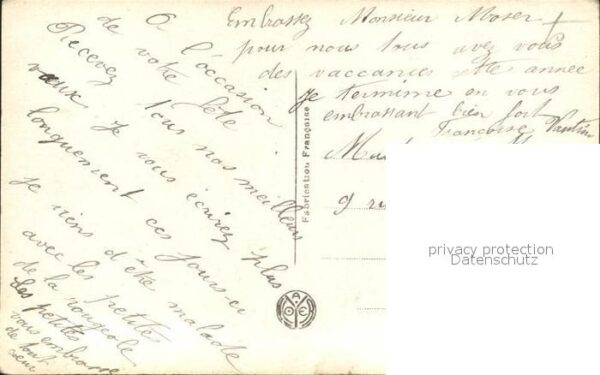 A l'occasion
de votre fête
Recevez tous nos meilleurs
vœux Je vous écrirez plus
longuement ces jours-ci
je viens d'être malade
avec les petites
de la rougeole
Les petites
vous embrasse
de tout
cœur
Embrassez Monsieur Moser
pour nous tous avez vous
des vaccances cette année
Je termime en vous
embrassant bien fort
Françoise
9
Fabrication Française
privacy protection
Datenschutz